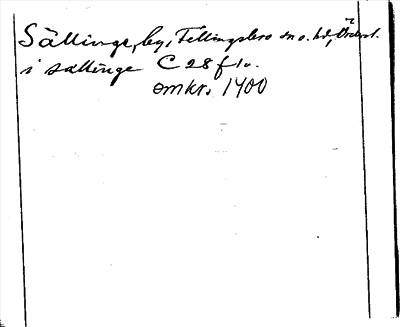 Sällinge, by, Fellingsbro sn o. hd, Västml.
i sallinge C 28 f 1v.
omkr. 1400